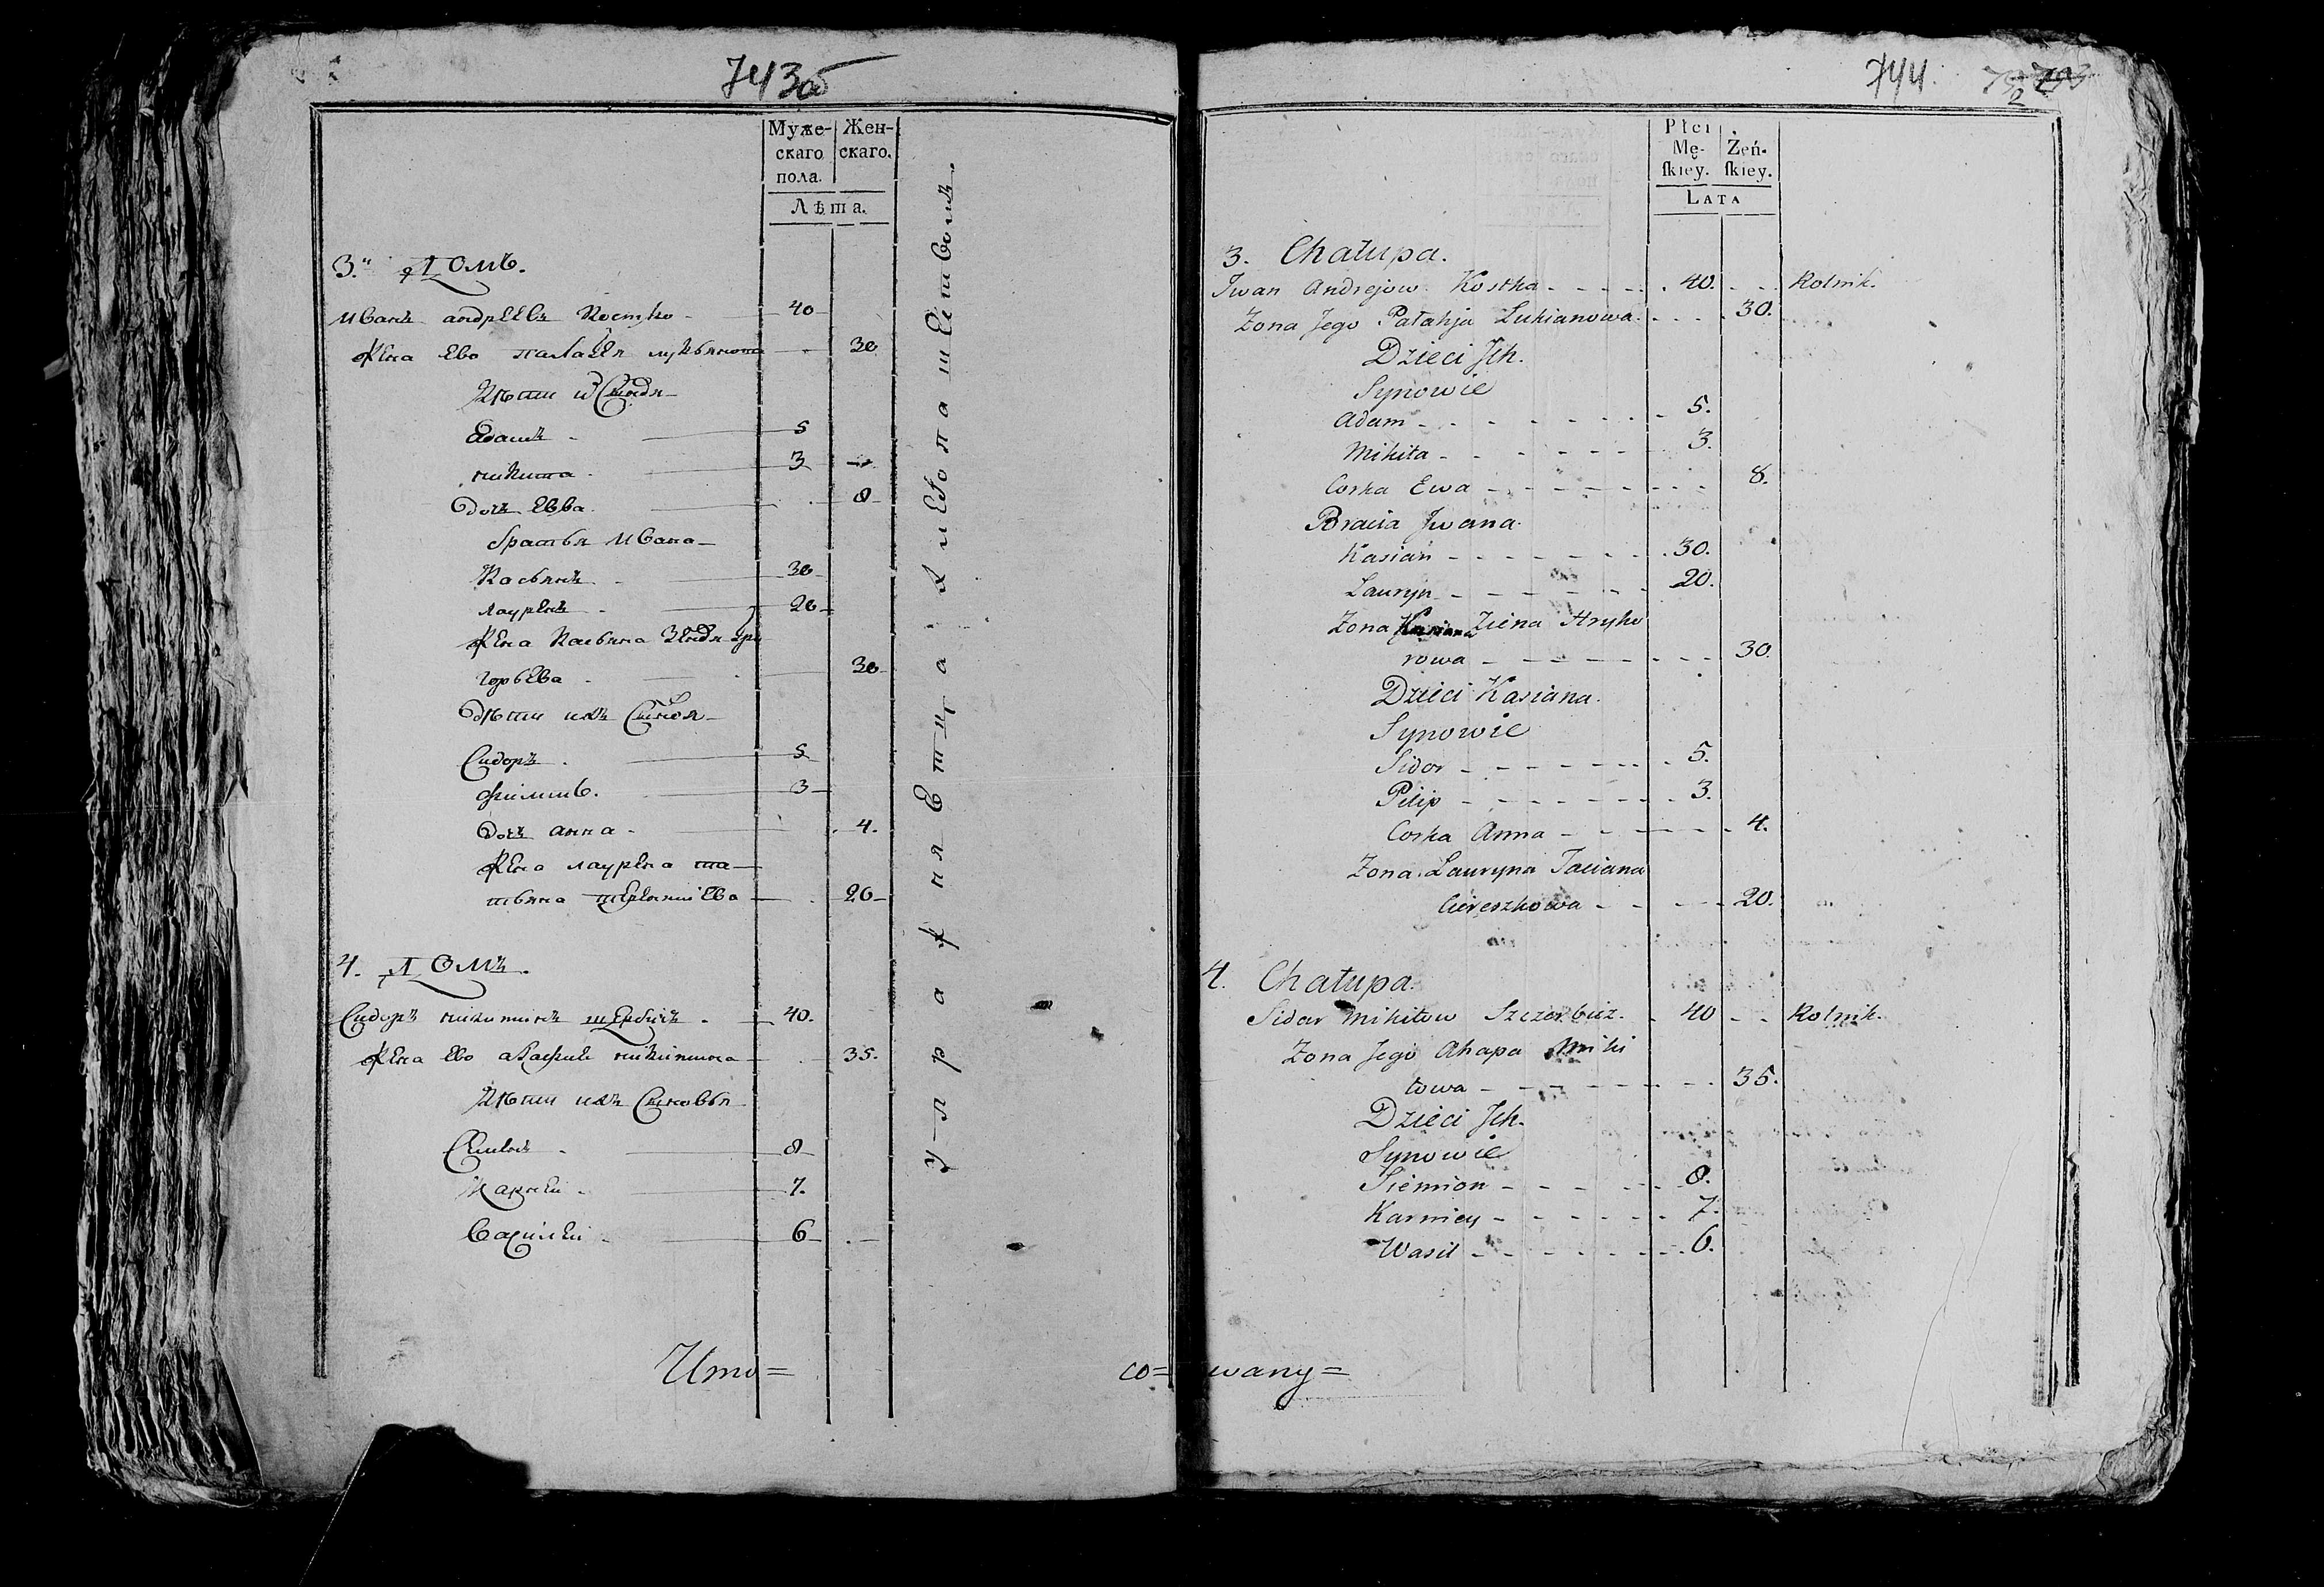 743об
Муже-
скаго
пола.
Жен-
скаго.
Лѣта.
3. Домъ.
Иванъ андреевъ Костко 40
Жена ево палагея лукьянова 30
Дѣти
Адамъ 5
никита 3
дочь Евва 8
братья Ивана
Касьянъ 30
лаурынъ 20
Жена Касьяна
горьева 30
дѣти ихъ
Сидоръ 5
филипъ. 3
дочь анна 4.
Жена лаурына та-
тьяна 20
4. Домъ.
Сидоръ никитинъ щербичъ 40.
Жена Ево никитина 35.
Дѣти ихъ Сыновья
Семенъ 8
Карней 7.
Василей 6
у правляетца хлебопашествомъ.
co=
744.
Płci
Mę-
ſkiey.
Żeń-
ſkiey.
LATA
3. Chałupa.
Jwan Andrejow Kostka 40. Rolnik.
Zona Jego Pałahja Łukianowa 30.
Dzieci Jch.
Synowie
Adam 5.
Mikita 3.
Corka Ewa 8.
Bracia Jwana.
Kasian 30.
Lauryn 20.
Zona Kasiana Ziena Hryho
rowa 30.
Dzieci Kasiana.
Synowie
Sidor 5.
Pilip 3.
Corka Anna 4.
Zona Lauryna Taciana
Ciereszkowa 20.
4. Chałupa.
Sidor Mikitow Szczerbicz. 40 Rolnik.
Zona Jego Ahapa Miki
towa 35.
Dzieci Jch.
Synowie
Siemion 8.
Karniey 7.
Wasil 6.
wany=